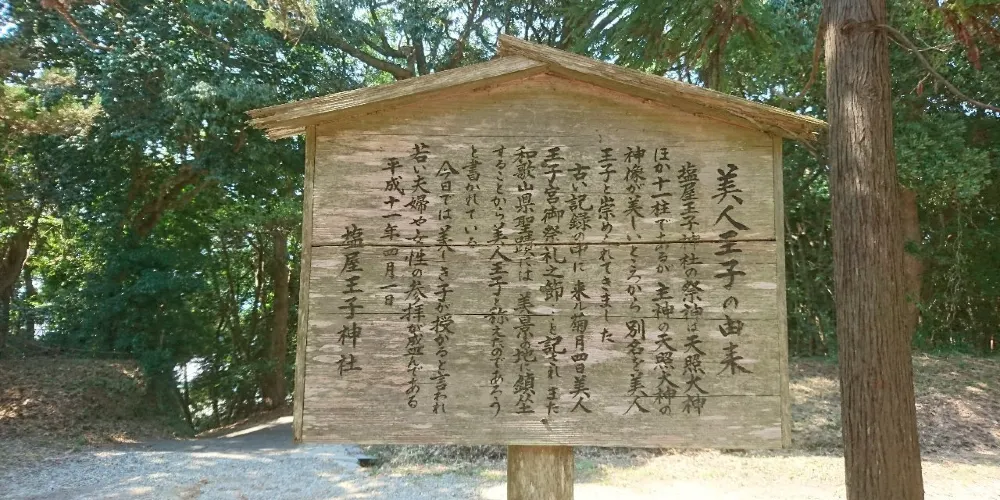 美人王子の由来
塩屋王子神社の祭神は天照大神
ほか十一柱であるが主神の天照大神の
神像が美しいところから別名を美人
王子と崇めくれてきました
古い記録の中に来ル菊月四日美人
王子宮御祭礼之節 と記され また
和歌山県聖蹟には 美景の地に鎮坐
することから美人王子と称えたのであろう
と書かれている
今日では美しき子が授かると言われ
若い夫婦や女性の参拝が盛んである
平成十一年四月一日
塩屋王子神社